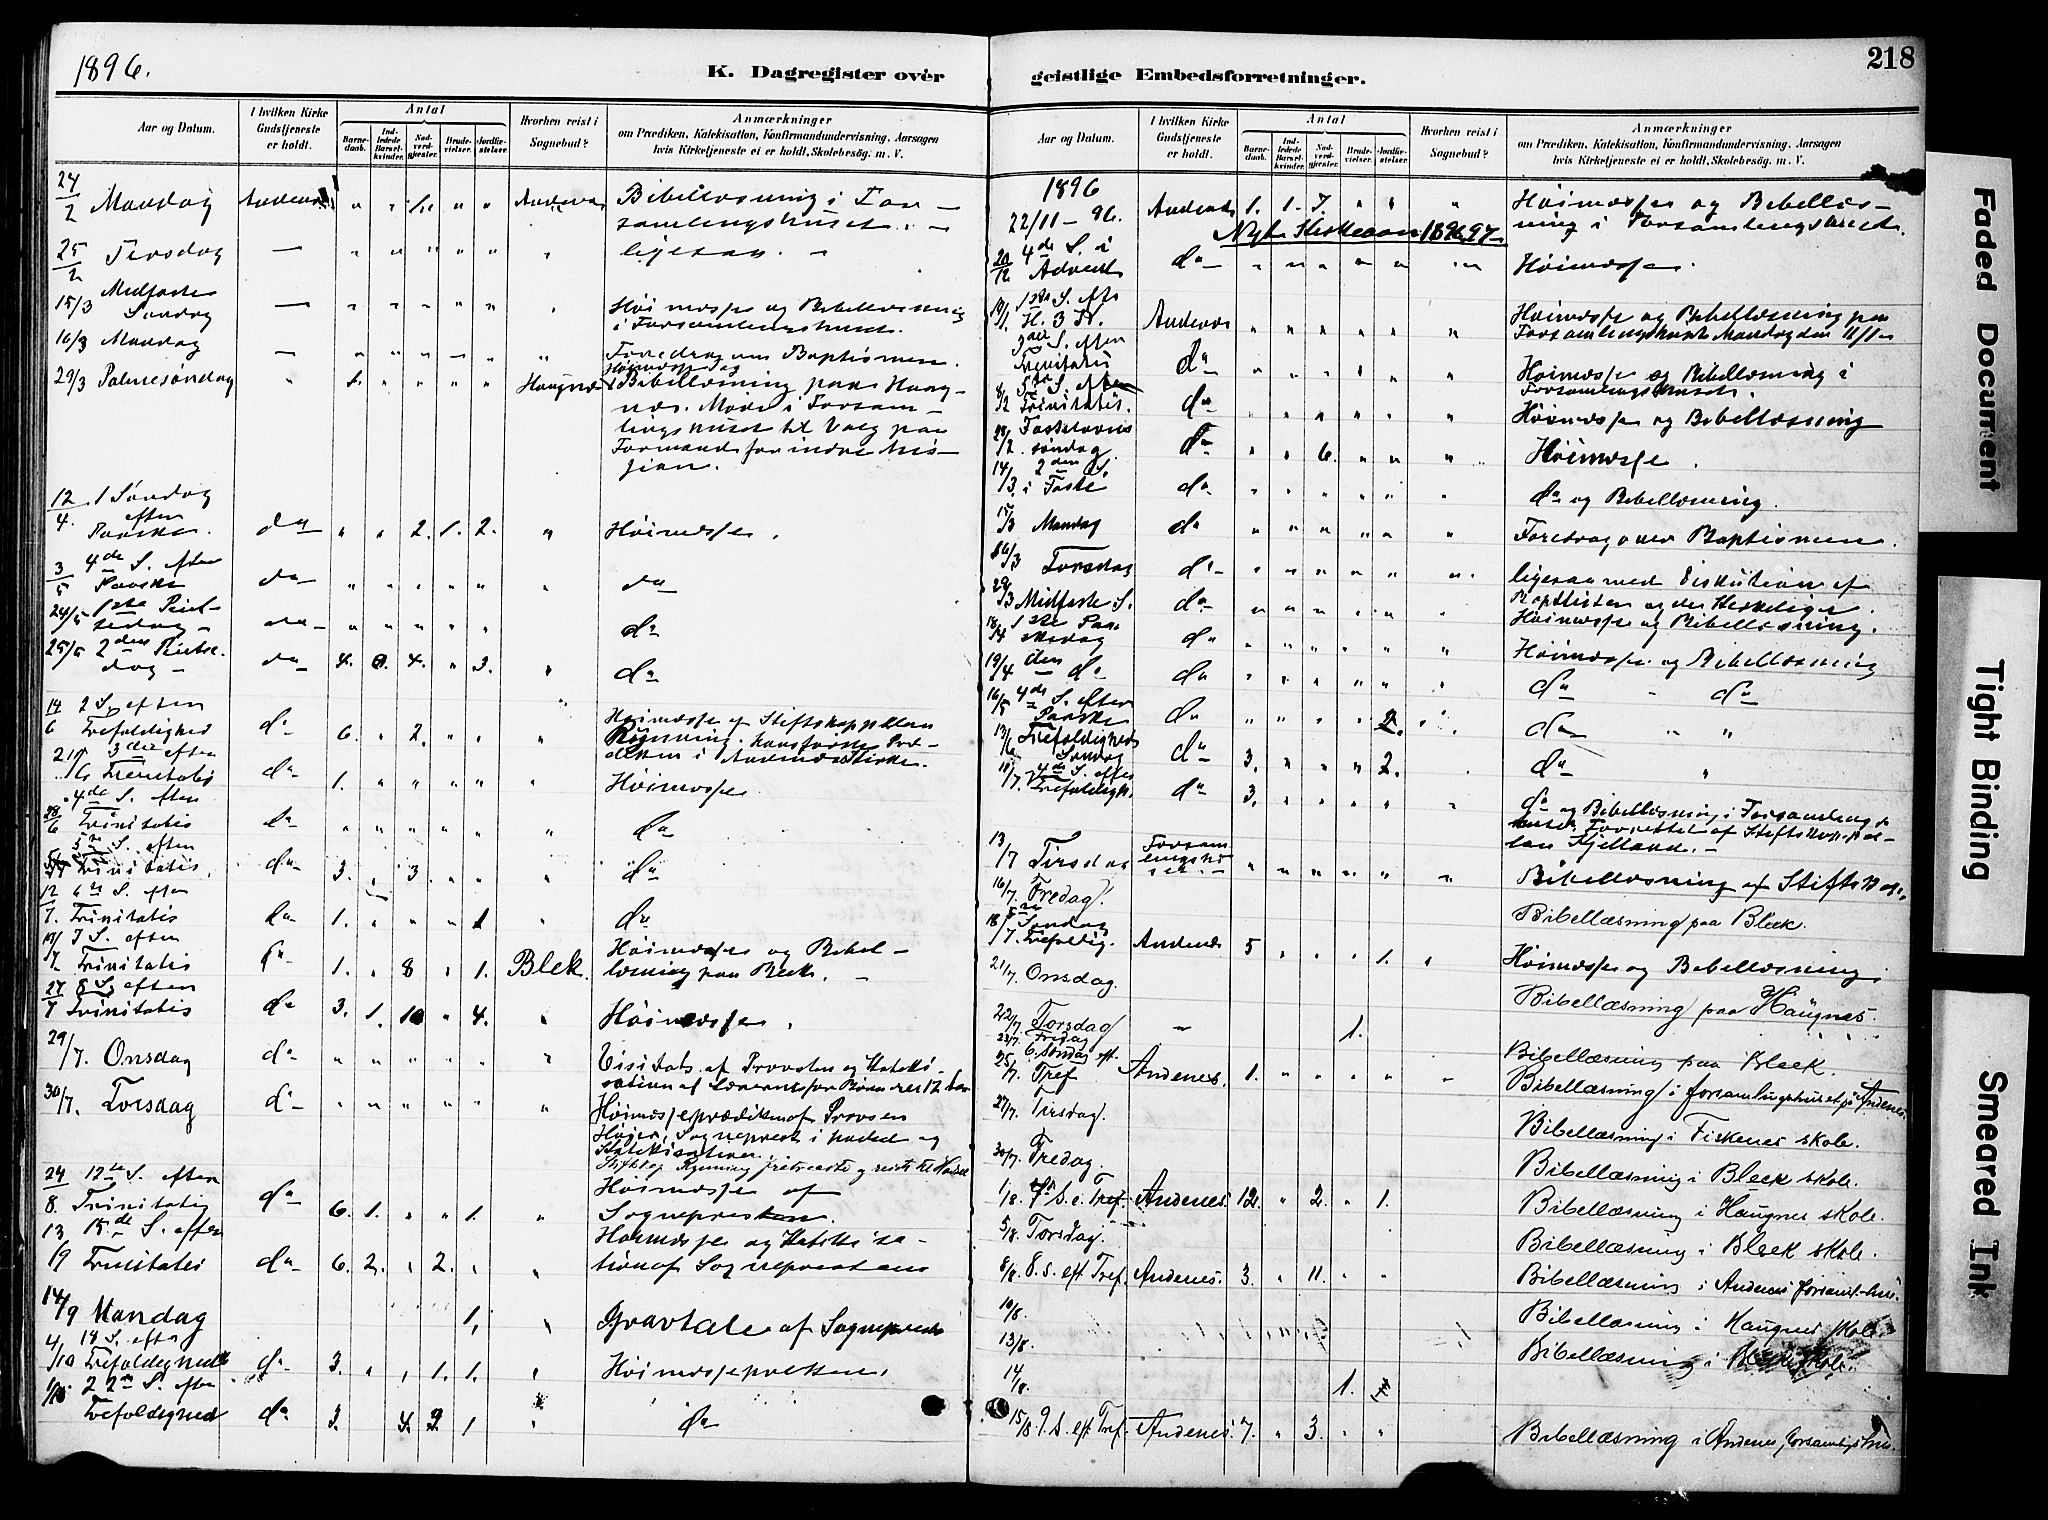 1896.
K. Dagregister over
geistlige Embedsforretninger.
218
Aar og Datum.
I hvilken Kirke Gudstjeneste er holdt.
Antal
Barnedaab.
Indledede Barselkvinder.
Nadverdgjester.
Brudevielser.
Jordfæstelser.
Hvorhen reist i Sognebud?
Anmærkninger
om Prædiken, Katekisation, Konfirmandundervisning, Aarsagen
hvis Kirketjeneste ei er holdt, Skolebesøg. m. V.
24/2 Mandag Andenes " " 1. " " Andenes Bibellæsning i For-
samlingshuset. -
25/2 Tirsdag — " " " " " " ligesaa. -
15/3 Midfaste Søndag — " " " " " " Høimæsse og Bibellæsning
i Forsamlingshuset.
16/3 Mandag — " " " " " " Foredrag om Baptismen.
29/3 Palmesøndag " " " " " Haugnæs Høimæsse og
Bibellæsning paa Haug-
næs. Møde i Forsam-
lingshuset til Valg paa
Formand for indre Mis-
sion.
12/4. 1 Søndag efter Paaske. da " " 2. 1. 2. " Høimæsse.
3/5 4de S. efter Paaske da " " " " " " da
24/5 1ste Pintsedag - da - " " " " " da
25/5 2den Pintsedag - da 4. 4. " 3. " da
14/6 2 S. efter Trefoldighed da 6. " 2. " " " Høimæsse af Stiftskappellan
Rønning.
diken i Andenes Kirke.
21/6 3die efter Trinitatis da 1. " " " " " Høimæsse
28/6 4de S. efter Trinitatis da " " " " " " da
5te S. efter Trinitatis. da 3. " 3. " " " da
12/7. 6te S. efter Trinitatis da 1. " " " 1 " da
19/7 7 S. efter Trinitatis da 1. " 8 " 1. Blek. Høimæsse og Bibel-
læsning paa Bleek. -
27/7 8 S. efter Trinitatis da 3. 1. 10 " 4. " Høimæsse.
29/7. Onsdag da " " " " " " Visitats af Provsten og Kateki-
sation af Lærerne for Børn
30/7. Torsdag da " " " " " " Høimæsseprædiken af Provsten
Høyer, Sogneprest i Hadsel og
Katekisation.
24/8. 12te S. efter Trinitatis da 6. 1. " " 1. " Høimæsse af
Sognepresten.
13/9 15de S. efter Trinitatis da 6. 2. " 2. " " Høimæsse og Katekisa-
tion af Sognepresten
14/9 Mandag 1, " Gravtale af Sognepresten
4/10 18 S. efter Trefoldighed da 3. " " 1. 1. " Høimæsseprediken.
22de S. efter Trefoldighed da 3. 4. 2. 1 " da
Aar og Datum.
I hvilken Kirke Gudstjeneste er holdt.
Antal
Barnedaab.
Indledede Barselkvinder.
Nadverdgjester.
Brudevielser.
Jordfæstelser.
Hvorhen reist i Sognebud?
Anmærkninger
om Prædiken, Katekisation, Konfirmandundervisning, Aarsagen
hvis Kirketjeneste ei er holdt, Skolebesøg. m. V.
1896
22/11 - 96. Andenes 1. 1. 7. " " " Høimæsse og Bibellæs-
ning i Forsamlingshuset.
Nyt Kirkeaar 1896-97
20/12 4de S. i Advent da " " " " " " Høimæsse.
1ste S. efter H. 3 K. Andenes " " " " " " Høimæsse og Bibellæsning paa
Forsamlingshuset Mandag den 11/1
3die S. efter Trinitatis da " " " " " " Høimæsse og Bibellæsning i
Forsamlingshuset.
5te S. efter Trinitatis. da " " " " " " Høimæsse og Bibellæsning
28/2 Fastelavns søndag da " " 6. " " " Høimæsse.
14/3 2den S. i Faste da " " " " " " da og Bibellæsning.
15/3 Mandag da " " " " " " Foredrag over Baptismen.
Torsdag da " " " " " " ligesaa med Diskution af
Baptisten og den Kirkelige
Midfaste S. da " " " " " " Høimæsse og Bibellæsning.
18/4 1ste Paaskedag da " " " " " " Høimæsse og Bibellæsning
19/4 den da da " " " " " " da " da
16/5 4de S. efter Paaske da " " " " 2. " da " "
13/6 Trefoldigheds Søndag da 3. " " " 2. da "
4de S. efter Trefoldigh. da 3. " " " " " da og Bibellæsning i Forsamlings
huset. Forrettet af Stiftskapel-
lan Kjelland. -
13/7 Tirsdag Forsamlingshuset. - " " " " " " Bibellæsning af Stiftskap.
16/7. Fredag. Bibellæsning paa Bleek.
18/7. 5te Søndag Trefoldig. Andenes 5 " " " 1. " Høimæsse og Bibellæsning
21/7. Onsdag. Bibellæsning paa Haugnes.
22/7. Torsdag " 1.
23/7. Fredag Bibellæsning paa Bleek.
25/7. 6. Søndag eft. Tref Andenes. 1. " " " " " Bibellæsning i forsamlingshuset på Andenes.
27/7. Tirsdag. Bibellæsning i Fiskenes skole.
30/7. Fredag. Bibellæsning i Bleek skole.
1/8. 7n S. e. Tref. Andenes. 12. " 2. " 1. Bibellæsning i Haugnes skole.
5/8. Torsdag. Bibellæsning i Bleek skole.
8/8. 8. S. eft Tref. Andenes. 3. " 11. " " Bibellæsning i Andenes forsaml.-hus.
10/8. Bibellæsning i Haugnes skole.
13/8. Bibellæsning i Bleek skole.
14/8. 1.
15/8 9. S. eft Tref. Andenes. 7. " 3. " " Bibellæsning i Andenes forsamlgshus.
Faded Document
Tight Binding
Smeared Ink